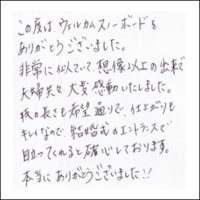 この度は、ウェルカムスノーボードを
ありがとうございました。
非常に似ていて、想像以上の出来で
夫婦共々大変感動いたしました。
板の長さも希望通りで、仕上がりも
キレイなので、結婚式のエントランスで
目立ってくれると確心しております。
本当にありがとうございました!!